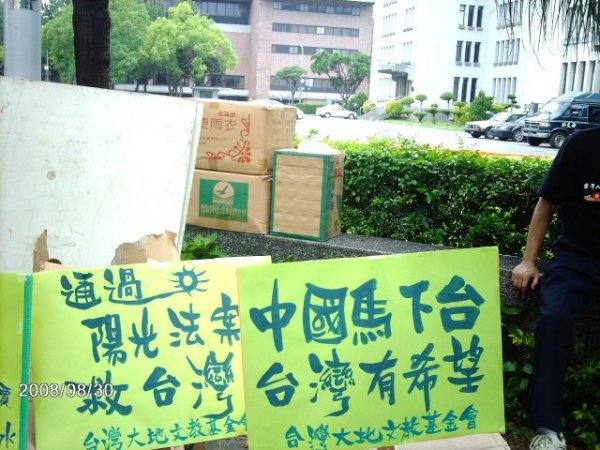 便雨衣
台灣人
通過
陽光法案
救台灣
台灣大地文教基金會
中國馬下台
台灣有希望
台灣大地文教基金會
水
2008/08/30